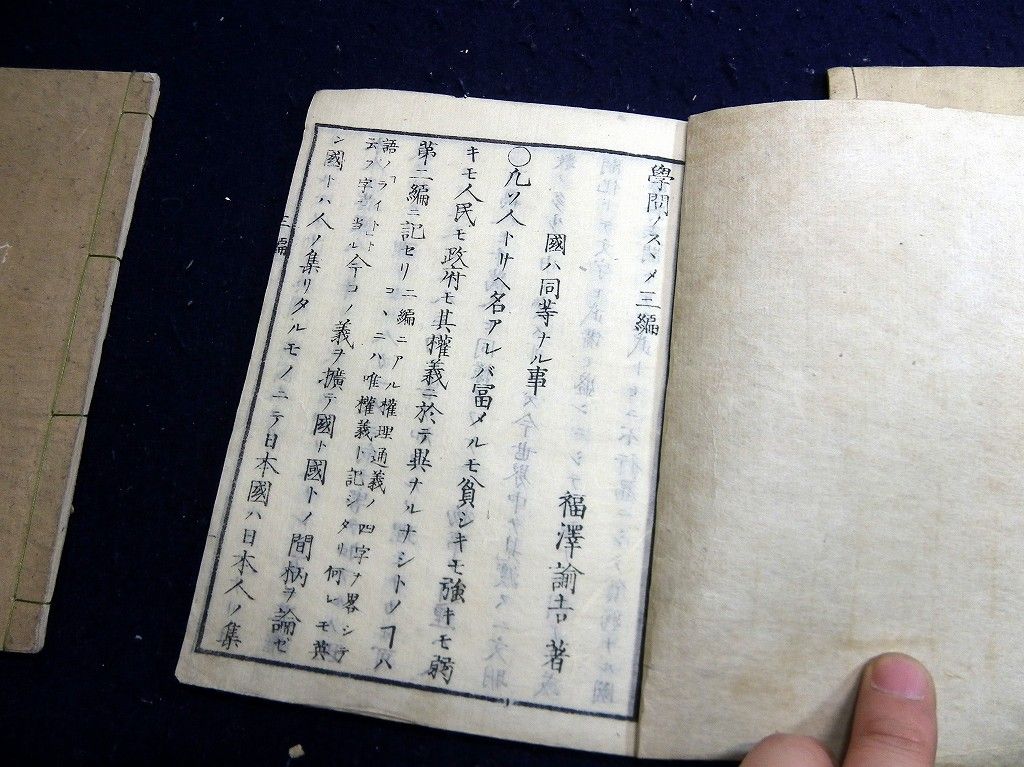 學問ノスヽメ三編
福澤諭吉 著
國ハ同等ナル事
○凢ソ人トサヘ名アレバ冨メルモ貧シキモ強キモ弱
キモ人民モ政府モ其權義ニ於テ異ナルナシトノヿハ
第二編ニ記セリ
二編ニアル權理通義ノ四字ヲ畧シテ
コヽニハ唯權義ト記シタリ何レモ英
語ノ「ライト」ト
云フ字ニ当ル
今コノ義ヲ擴テ國ト國トノ間柄ヲ論ゼ
ン國トハ人ノ集リタルモノニテ日本國ハ日本人ノ集
三編